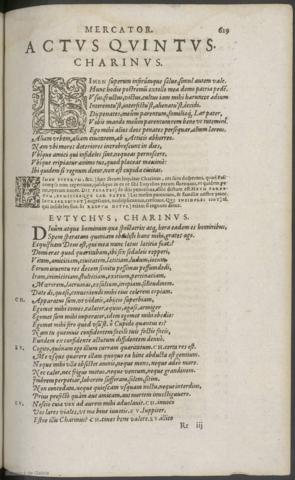 MERCATOR. 629
ACTVS QVINTVS.
CHARINVS.
LIMEN superum inferúmque salue, simul autem vale.
Hunc hodie postremù extollo mea domo patria pedē.
Vsus, fructus, victus, cultus iam mihi harunce ædium
Interemtu'st, interfectu'st, alienatu'st, occidi.
Di penates meûm parentum, familiæq; Lar pater,
Vobis mando meûm parentum rem bene vt tutemini.
Ego mihi alios deos penates persequar, alium Larem,
Aliam vrbem, aliam ciuitatem, ab Atticis abhorreo.
Nam vbi mores deteriores increbrescunt in dies,
Vbi qui amici qui infideles sint, nequeas pernoscere,
Vbíque eripiatur animo tuo, quod placeat maxumè:
Ibi quidem si regnum detur, non est cupida ciuitas.
EVTYCHVS, CHARINVS.
Diuûm atque hominum quæ spectatrix atq; hera eadem es hominibus,
Spem speratam quoniam obtulisti hanc mihi, grates ago.
Ecquisnam Deus est, qui mea nunc lætus lætitia fuat?
Domi erat quod quæritabam, ibi sex sodaleis repperi,
Vitam, amicitiam, ciuitatem, lætitiam, ludum, iocum.
Eorum inuentu res decem simitu pessumas pessumdedi,
Iram, inimicitiam, stultitiam, exitium, pertinaciam,
Mœrorem, lacrumas, exsilium, inopiam, solitudinem.
Date di, quæso, conueniundi mihi eius celerem copiam.
CH. Apparatus sum, vt videtis, abjicio superbiam,
Egomet mihi comes, calator, equus, agaso, armiger
Egomet sum mihi imperator, idem egomet mihi obedio:
Egomet mihi fero quod vsu'st. ô Cupido quantus es?
Nam tu quemuis confidentem facilè tuis factis facis,
Eundem ex confidente actutum diffidentem denuò.
EV. Cogito, quónam ego illum curram quæritatum. CH. certa res est.
Me vsque quærere illam quoquo hinc abducta est gentium.
Neque mihi vlla obsistet amnis, neque mons, neque adeò mare.
Nec calor, nec frigus metuo, neque ventum, neque grandinem.
Imbrem perpetiar, laborem sufferam, solem, sitim.
Non concedam, neque quiescam vsquam noctu, neque interdiu,
Prius profectò quàm aut amicam, aut mortem inuestigauero.
EV. Nescio cuia vox ad aures mihi aduolauit. CH. inuoco
Vos Lares viales, vt me bene iuuetis. EV. Iuppiter.
Estne illic Charinus? CH. ciues bene valete. EV. ilico
Rr iij